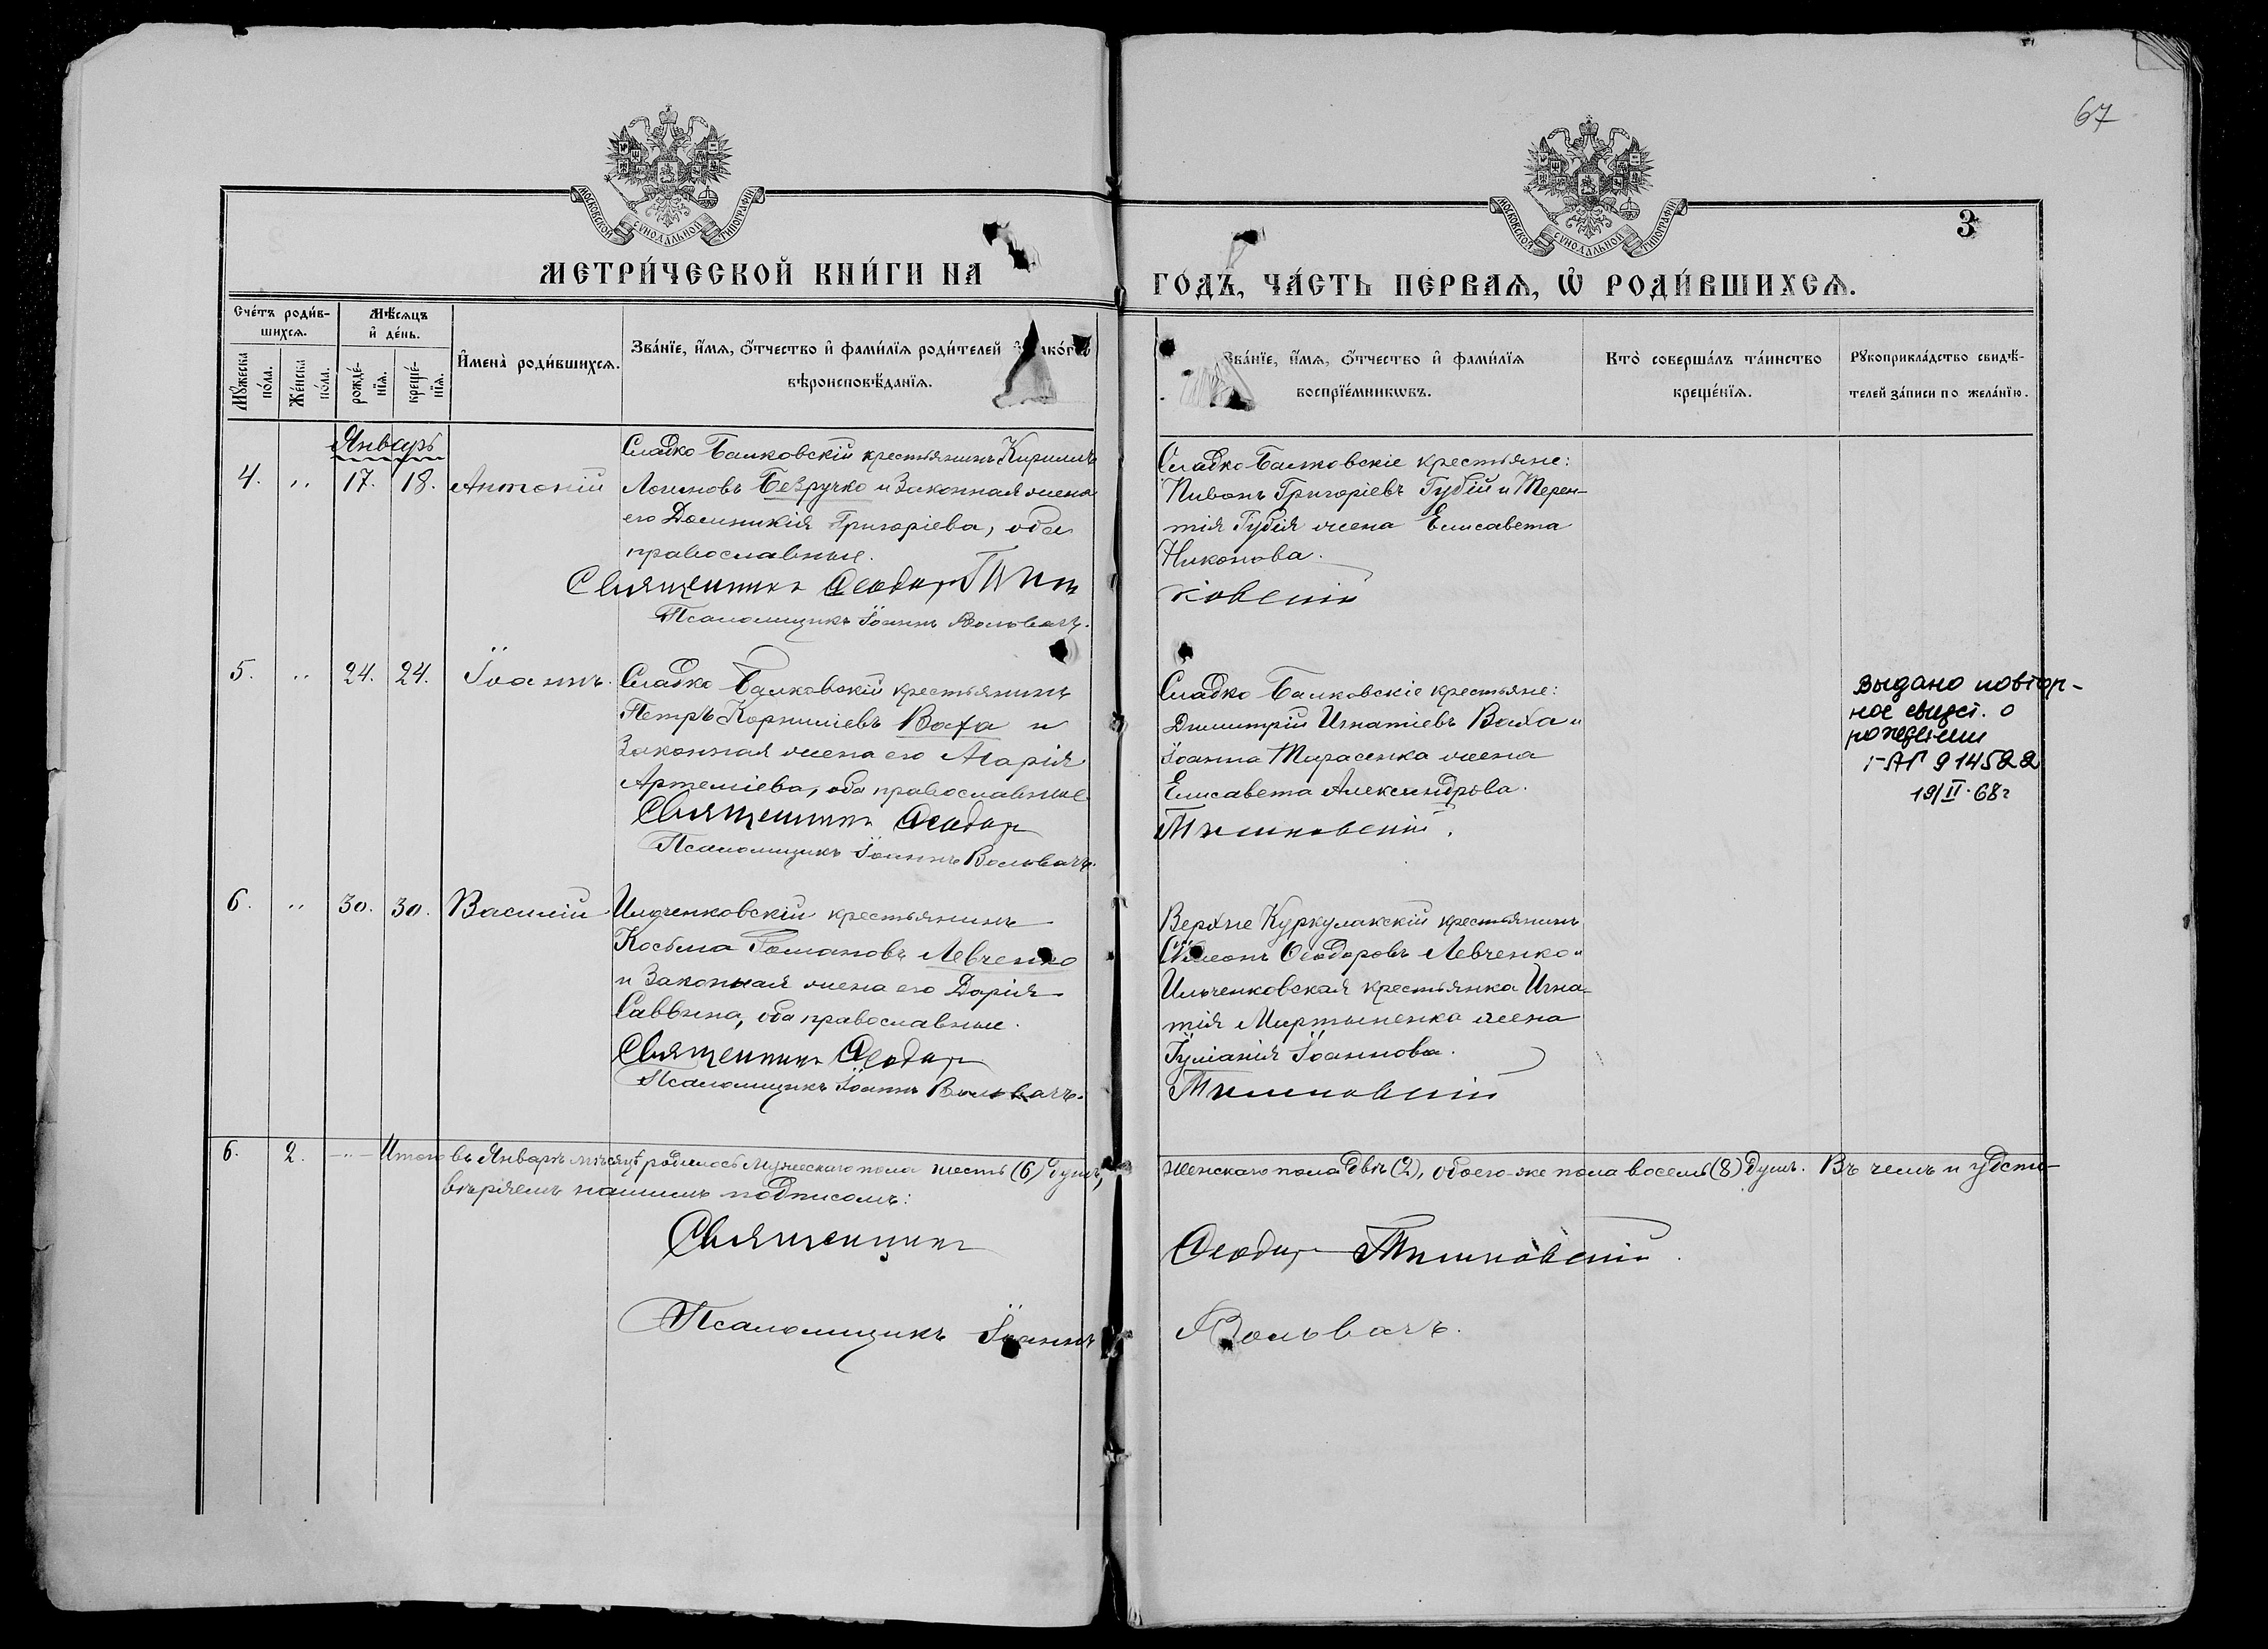 67
МОСКОВСКОЙ СѴНОДАЛЬНОЙ ТИПОГРАФІИ
МОСКОВСКОЙ СѴНОДАЛЬНОЙ ТИПОГРАФІИ
3
МЕТРИ́ЧЕСКОЙ КНИ́ГИ НА
ГО́ДЪ, ЧА́СТЬ ПЕ́РВАѦ, Ѡ҆ РОДИ́ВШИХСѦ.
Сче́тъ роди́в-
шихсѧ.
Мꙋ́жеска
по́ла.
Же́нска
по́ла.
Мѣ́сѧцъ
и҆ де́нь.
рожде́-
нїѧ.
креще́-
нїѧ.
И҆мена̀ роди́вшихсѧ.
Зва́нїе, и҆́мѧ, ѻ҆́тчество и҆ фами́лїѧ роди́телей
вѣроисповѣ́данїѧ.
Зва́нїе, и҆́мѧ, ѻ҆́тчество и҆ фами́лїѧ
воспрїе́мникѡвъ.
Кто̀ соверша́лъ та́инство
креще́нїѧ.
Рꙋкоприкла́дство свидѣ́-
телей за́писи по жела́нїю.
Январь
4. „ 17. 18. Антоній
Сладко Балковскій крестьянинъ Кириллъ
Логиновъ Безручко и Законная жена
его Домникія Григоріева, оба
православные.
Священникъ Ѳеодоръ Тит
Псаломщикъ Іоаннъ Вольвачъ.
Сладко-Балковскіе крестьяне:
Пивонъ Григоріевъ Губій и Терен-
тія Губія жена Елисавета
Никонова.
ковскій
5. „ 24. 24. Іоаннъ.
Сладко Балковскій крестьянинъ
Петръ Корниліевъ Ваха и
Законная жена его Марія
Артеміева, оба православные.
Священникъ Ѳеодоръ
Псаломщикъ Іоаннъ Вольвачъ.
Сладко Балковскіе крестьяне:
Димитрій Игнатіевъ Ваха и
Іоанна Тарасенка жена
Елисавета Александрова.
Выдано повтор-
ное свидет. о
рождении
I-АГ 914522
19/II-68г
6. „ 30. 30. Василій
Ильченковскій крестьянинъ
Косьма Романовъ Левченко
и Законная жена его Дарія
Саввина, оба православные.
Священникъ Ѳеодоръ
Псаломщикъ Іоаннъ Вольвачъ.
Верхне Куркулакскій крестьянинъ
Симеонъ Ѳеодоровъ Левченко и
Ильченковская крестьянка Игна-
тія Мартыненка жена
Іуліанія Іоаннова.
6. 2. -„- Итого въ Январѣ мѣсяцѣ родилось Мужескаго пола шесть (6) душъ,
женскаго пола двѣ (2), обоего-же пола восемь (8) душъ. Въ чемъ и удсто-
вѣряемъ нашимъ подписомъ:
Священникъ
Ѳеодоръ
Псаломщикъ Іоаннъ
Вольвачъ.